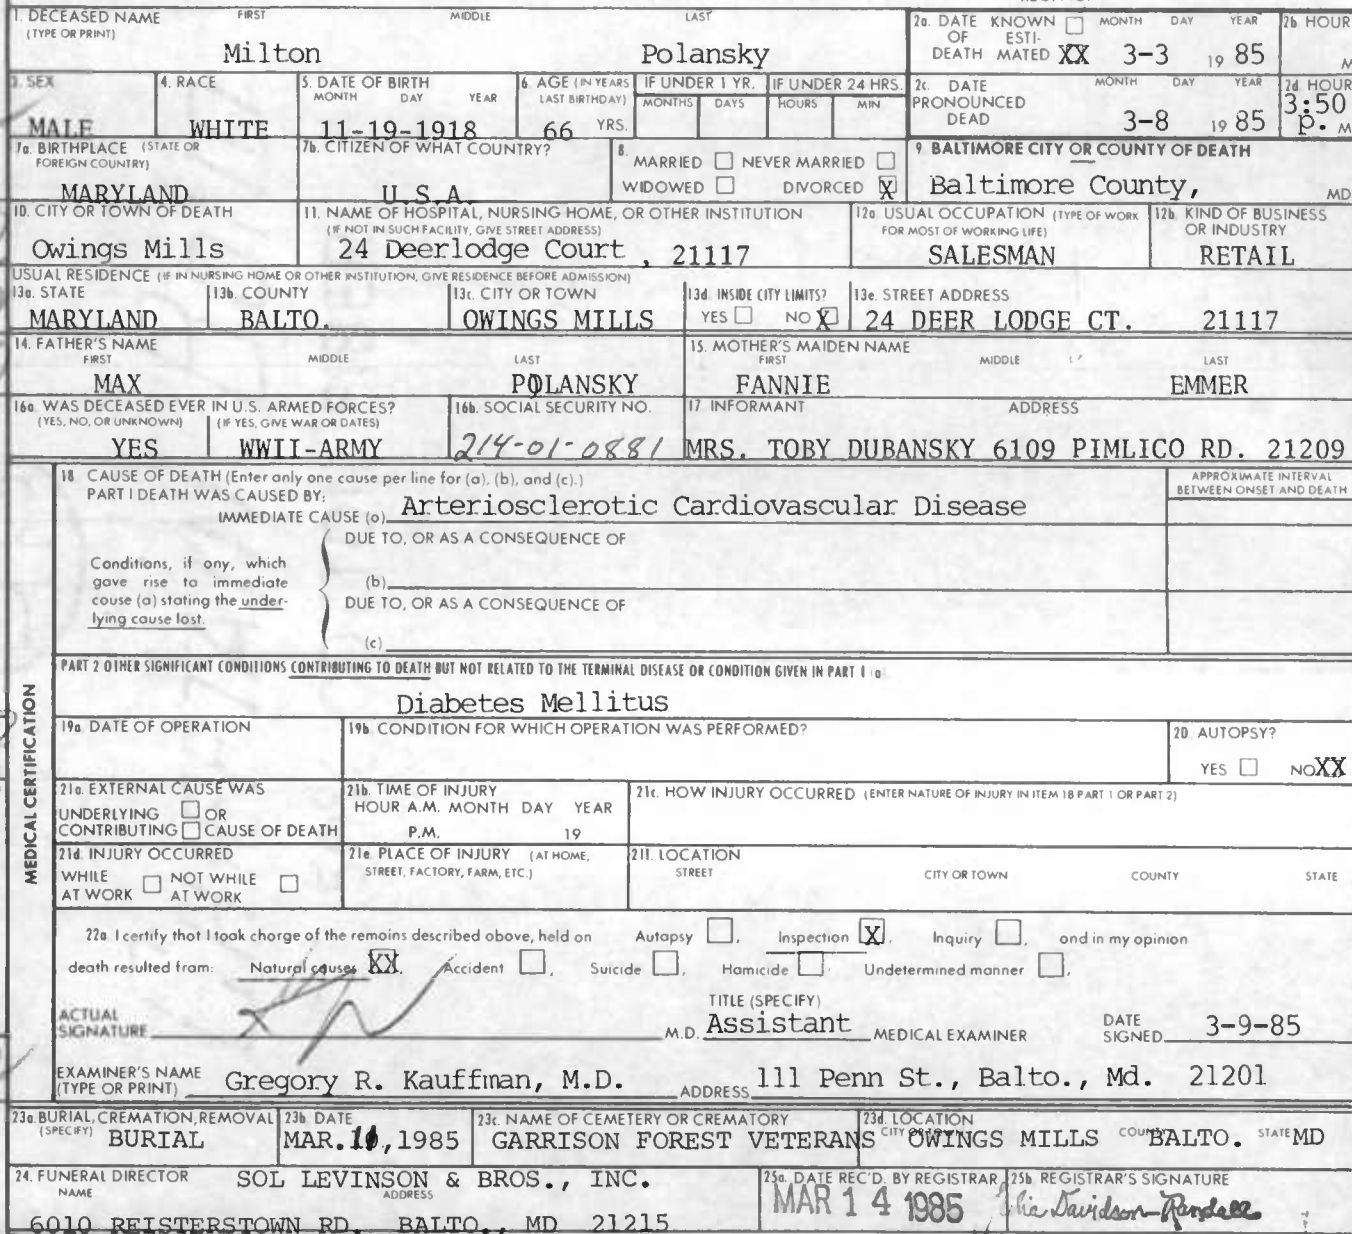 1. DECEASED NAME FIRST MIDDLE LAST
(TYPE OR PRINT)
Milton Polansky
2a. DATE KNOWN ☐ MONTH DAY YEAR
OF ESTI-
DEATH MATED XX 3-3 19 85
2b. HOUR
M
3. SEX
MALE
4. RACE
WHITE
5. DATE OF BIRTH
MONTH DAY YEAR
11-19-1918
6. AGE (IN YEARS
LAST BIRTHDAY)
66 YRS.
IF UNDER 1 YR.
MONTHS DAYS
IF UNDER 24 HRS.
HOURS MIN
2c. DATE MONTH DAY YEAR
PRONOUNCED
DEAD 3-8 19 85
2d. HOUR
3:50
P. M
7a. BIRTHPLACE (STATE OR
FOREIGN COUNTRY)
MARYLAND
7b. CITIZEN OF WHAT COUNTRY?
U.S.A.
8.
MARRIED ☐ NEVER MARRIED ☐
WIDOWED ☐ DIVORCED X
9. BALTIMORE CITY OR COUNTY OF DEATH
Baltimore County, MD
10. CITY OR TOWN OF DEATH
Owings Mills
11. NAME OF HOSPITAL, NURSING HOME, OR OTHER INSTITUTION
(IF NOT IN SUCH FACILITY, GIVE STREET ADDRESS)
24 Deerlodge Court , 21117
12a. USUAL OCCUPATION (TYPE OF WORK
FOR MOST OF WORKING LIFE)
SALESMAN
12b. KIND OF BUSINESS
OR INDUSTRY
RETAIL
USUAL RESIDENCE (IF IN NURSING HOME OR OTHER INSTITUTION, GIVE RESIDENCE BEFORE ADMISSION)
13a. STATE
MARYLAND
13b. COUNTY
BALTO.
13c. CITY OR TOWN
OWINGS MILLS
13d. INSIDE CITY LIMITS?
YES ☐ NO X
13e. STREET ADDRESS
24 DEER LODGE CT. 21117
14. FATHER'S NAME
FIRST MIDDLE LAST
MAX POLANSKY
15. MOTHER'S MAIDEN NAME
FIRST MIDDLE LAST
FANNIE EMMER
16a. WAS DECEASED EVER IN U.S. ARMED FORCES?
(YES, NO, OR UNKNOWN) (IF YES, GIVE WAR OR DATES)
YES WWII-ARMY
16b. SOCIAL SECURITY NO.
214-01-0881
17. INFORMANT ADDRESS
MRS. TOBY DUBANSKY 6109 PIMLICO RD. 21209
MEDICAL CERTIFICATION
18 CAUSE OF DEATH (Enter only one cause per line for (a), (b), and (c).)
PART I DEATH WAS CAUSED BY:
IMMEDIATE CAUSE (a) Arteriosclerotic Cardiovascular Disease
APPROXIMATE INTERVAL
BETWEEN ONSET AND DEATH
DUE TO, OR AS A CONSEQUENCE OF
Conditions, if any, which
gave rise to immediate
cause (a) stating the under-
lying cause last.
(b)
DUE TO, OR AS A CONSEQUENCE OF
(c)
PART 2 OTHER SIGNIFICANT CONDITIONS CONTRIBUTING TO DEATH BUT NOT RELATED TO THE TERMINAL DISEASE OR CONDITION GIVEN IN PART I (a)
Diabetes Mellitus
19a. DATE OF OPERATION
19b. CONDITION FOR WHICH OPERATION WAS PERFORMED?
20. AUTOPSY?
YES ☐ NO XX
21a. EXTERNAL CAUSE WAS
UNDERLYING ☐ OR
CONTRIBUTING ☐ CAUSE OF DEATH
21b. TIME OF INJURY
HOUR A.M. MONTH DAY YEAR
P.M. 19
21c. HOW INJURY OCCURRED (ENTER NATURE OF INJURY IN ITEM 18 PART 1 OR PART 2)
21d. INJURY OCCURRED
WHILE ☐ NOT WHILE ☐
AT WORK AT WORK
21e. PLACE OF INJURY (AT HOME,
STREET, FACTORY, FARM, ETC.)
21f. LOCATION
STREET CITY OR TOWN COUNTY STATE
22a. I certify that I took charge of the remains described above, held on Autopsy ☐, Inspection X, Inquiry ☐, and in my opinion
death resulted from: Natural causes XX, Accident ☐, Suicide ☐, Homicide ☐, Undetermined manner ☐,
ACTUAL
SIGNATURE M.D.
TITLE (SPECIFY)
Assistant MEDICAL EXAMINER
DATE
SIGNED 3-9-85
EXAMINER'S NAME
(TYPE OR PRINT) Gregory R. Kauffman, M.D. ADDRESS 111 Penn St., Balto., Md. 21201
23a. BURIAL, CREMATION, REMOVAL
(SPECIFY) BURIAL
23b. DATE
MAR. , 1985
23c. NAME OF CEMETERY OR CREMATORY
GARRISON FOREST VETERANS
23d. LOCATION
CITY OR TOWN OWINGS MILLS COUNTY BALTO. STATE MD
24. FUNERAL DIRECTOR
NAME SOL LEVINSON & BROS., INC.
ADDRESS
6010 REISTERSTOWN RD. BALTO., MD 21215
25a. DATE REC'D. BY REGISTRAR
MAR 14 1985
25b. REGISTRAR'S SIGNATURE
Davidson-Randall